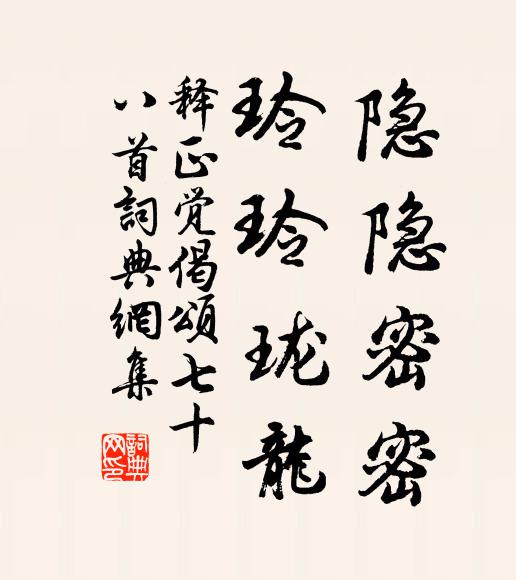 隐隐密密
玲玲珑龍
释正觉偈頌七十
八首詞典網集
詞典
网印